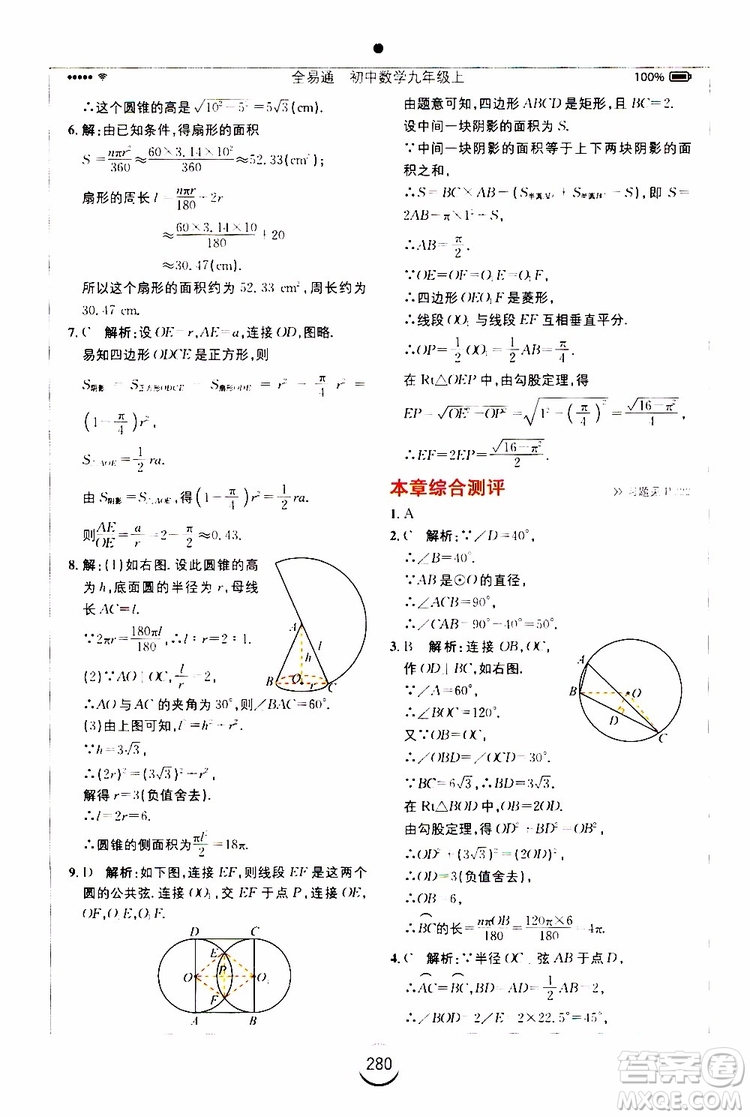 全易通 初中数学九年级上
100%
∴这个圆锥的高是√(10²－5²)＝5√3(cm).
6. 解:由已知条件,得扇形的面积
S＝nπr²/360≈60×3.14×10²/360≈52.33(cm²)
扇形的周长 l＝nπr/180＋2r
≈60×3.14×10/180＋20
≈30.47(cm).
所以这个扇形的面积约为 52.33 cm²,周长约为
30.47 cm.
7. C 解析:设 OE＝r,AE＝a,连接 OD,图略.
易知四边形 ODCE 是正方形,则
S阴影＝S正方形ODCE－S扇形ODE＝r²－π/4 r²＝
(1－π/4)r²,
S△AOE＝1/2 ra.
由 S阴影＝S△AOE,得(1－π/4)r²＝1/2 ra.
则AE/OE＝a/r＝2－π/2≈0.43.
8. 解:(1)如右图. 设此圆锥的高
为 h,底面圆的半径为 r,母线
长 AC＝l.
∵2πr＝180πl/180,∴l∶r＝2∶1.
(2)∵AO⊥OC,l/r＝2,
∴AO 与 AC 的夹角为 30°,则∠BAC＝60°.
(3)由上图可知,l²＝h²＋r²,
∵h＝3√3,
∴(2r)²＝(3√3)²＋r²,
解得 r＝3(负值舍去).
∴l＝2r＝6.
∴圆锥的侧面积为πl²/2＝18π.
9. D 解析:如下图,连接 EF,则线段 EF 是这两个
圆的公共弦. 连接 OO₁,交 EF 于点 P,连接 OE,
OF,O₁E,O₁F.
A
l
h
B
O
r
C
D
C
E
O
P
O₁
F
A
B
由题意可知,四边形 ABCD 是矩形,且 BC＝2.
设中间一块阴影的面积为 S.
∵中间一块阴影的面积等于上下两块阴影的面
积之和,
2AB－π×1²＝S.
∴AB＝π/2.
∵OE＝OF＝O₁E＝O₁F,
∴四边形 OEO₁F 是菱形,
∴线段 OO₁ 与线段 EF 互相垂直平分.
∴OP＝1/2 OO₁＝1/2 AB＝π/4.
在 Rt△OEP 中,由勾股定理,得
EP＝√(OE²－OP²)＝√(1²－(π/4)²)＝√(16－π²)/4,
∴EF＝2EP＝√(16－π²)/2.
本章综合测评
1. A
2. C 解析:∵∠D＝40°,
∴∠B＝40°.
∵AB 是⊙O 的直径,
∴∠ACB＝90°,
∴∠CAB＝90°－40°＝50°.
3. B 解析:连接 OB,OC,
作 OD⊥BC,如右图.
∵∠A＝60°,
∴∠BOC＝120°.
又∵OB＝OC,
∴∠OBD＝∠OCD＝30°.
∵BC＝6√3,∴BD＝3√3.
在 Rt△BOD 中,OB＝2OD,
由勾股定理,得 OD²＋BD²＝OB²,
∴OD²＋(3√3)²＝(2OD)²,
∴OD＝3(负值舍去),
∴OB＝6,
∴BC的长＝nπOB/180＝120π×6/180＝4π.
A
B
O
D
C
4. C 解析:∵半径 OC⊥弦 AB 于点 D,
∴AC＝BC,∴∠E＝1/2∠BOC＝22.5°,
∴∠BOD＝2∠E＝2×22.5°＝45°,
280
答案圈
MXQE.COM